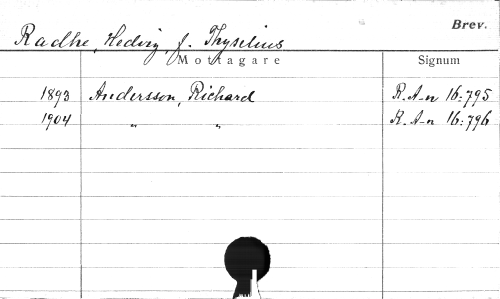 Brev.
Radhe, Hedvig, f. Thyselius
Mottagare Signum
1893 Andersson, Richard R.A-n 16:795
1904 " " R.A-n 16:796